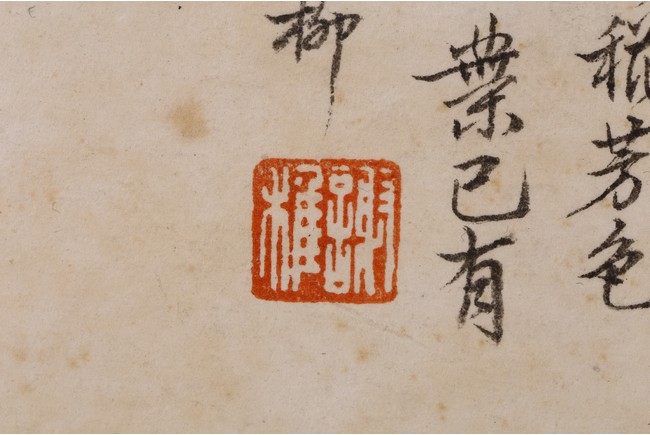 芳色
葉已有
柳
謝稚